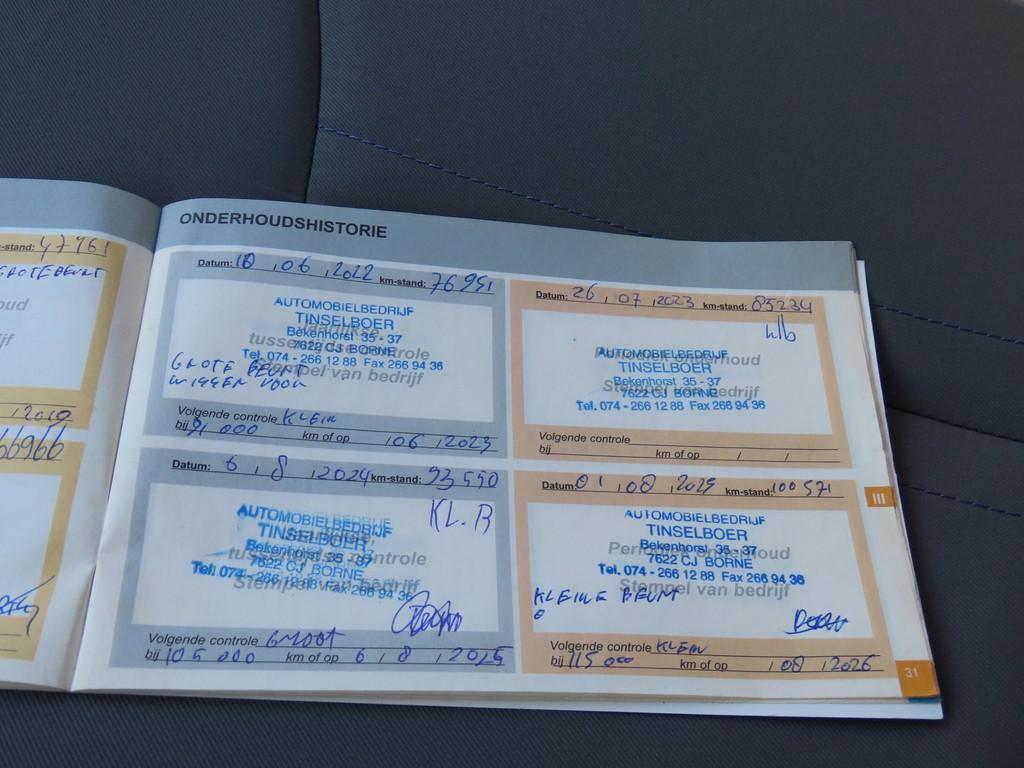 ONDERHOUDSHISTORIE
-stand: 47961
GROTE BEURT
oud
ijf
2019
66966
Datum: 10 , 06 , 2022 km-stand: 76951
AUTOMOBIELBEDRIJF
TINSELBOER
Bekenhorst 35 - 37
7622 CJ BORNE
Tel. 074 - 266 12 88 Fax 266 94 36
tussentijdse controle
Stempel van bedrijf
GROTE BEURT
WISSER VOOR
Volgende controle KLEIN
bij 91 000 km of op / 06 / 2023
Datum: 26 , 07 , 2023 km-stand: 85234
AUTOMOBIELBEDRIJF
TINSELBOER
Bekenhorst 35 - 37
7622 CJ BORNE
Tel. 074 - 266 12 88 Fax 266 94 36
Periodiek onderhoud
Stempel van bedrijf
Volgende controle
bij km of op / /
Datum: 6 / 8 / 2024 km-stand: 93550
KL. B
AUTOMOBIELBEDRIJF
TINSELBOER
Bekenhorst 35 - 37
7622 CJ BORNE
Tel. 074 - 266 12 88 Fax 266 94 36
tussentijdse controle
Stempel van bedrijf
Volgende controle GROOT
bij 105 000 km of op 6 / 8 / 2025
Datum: 01 / 08 / 2025 km-stand: 100571
AUTOMOBIELBEDRIJF
TINSELBOER
Bekenhorst 35 - 37
7622 CJ BORNE
Tel. 074 - 266 12 88 Fax 266 94 36
Periodiek onderhoud
Stempel van bedrijf
KLEINE BEURT
Volgende controle KLEIN
bij 115 000 km of op / 08 / 2026
III
31